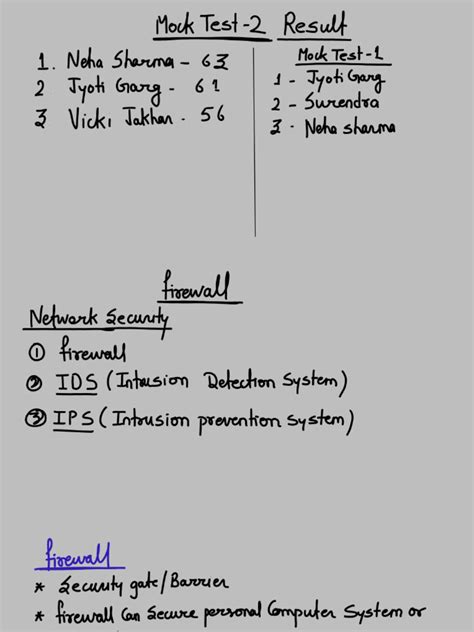 Mock Test-2 Result
1. Neha Sharma - 63
2 Jyoti Garg - 61
3 Vicki Jakhar - 56
Mock Test-1
1 - Jyoti Garg
2 - Surendra
3 - Neha sharma
firewall
Network Security
① firewall
② IDS (Intrusion Detection System)
③ IPS (Intrusion prevention System)
firewall
* Security gate/Barrier
* firewall Can Secure personal Computer System or